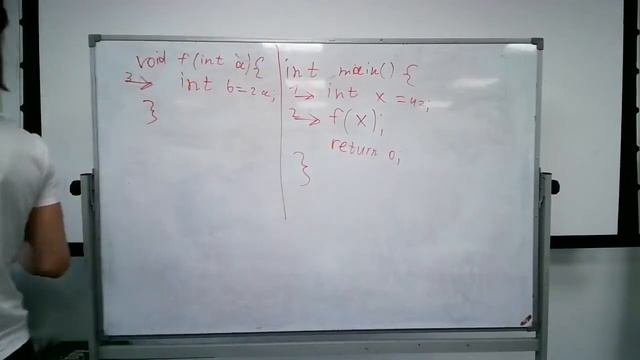 void f(int a){
3→ int b=2a;
}
int main() {
1→ int x=42;
2→ f(x);
return 0;
}